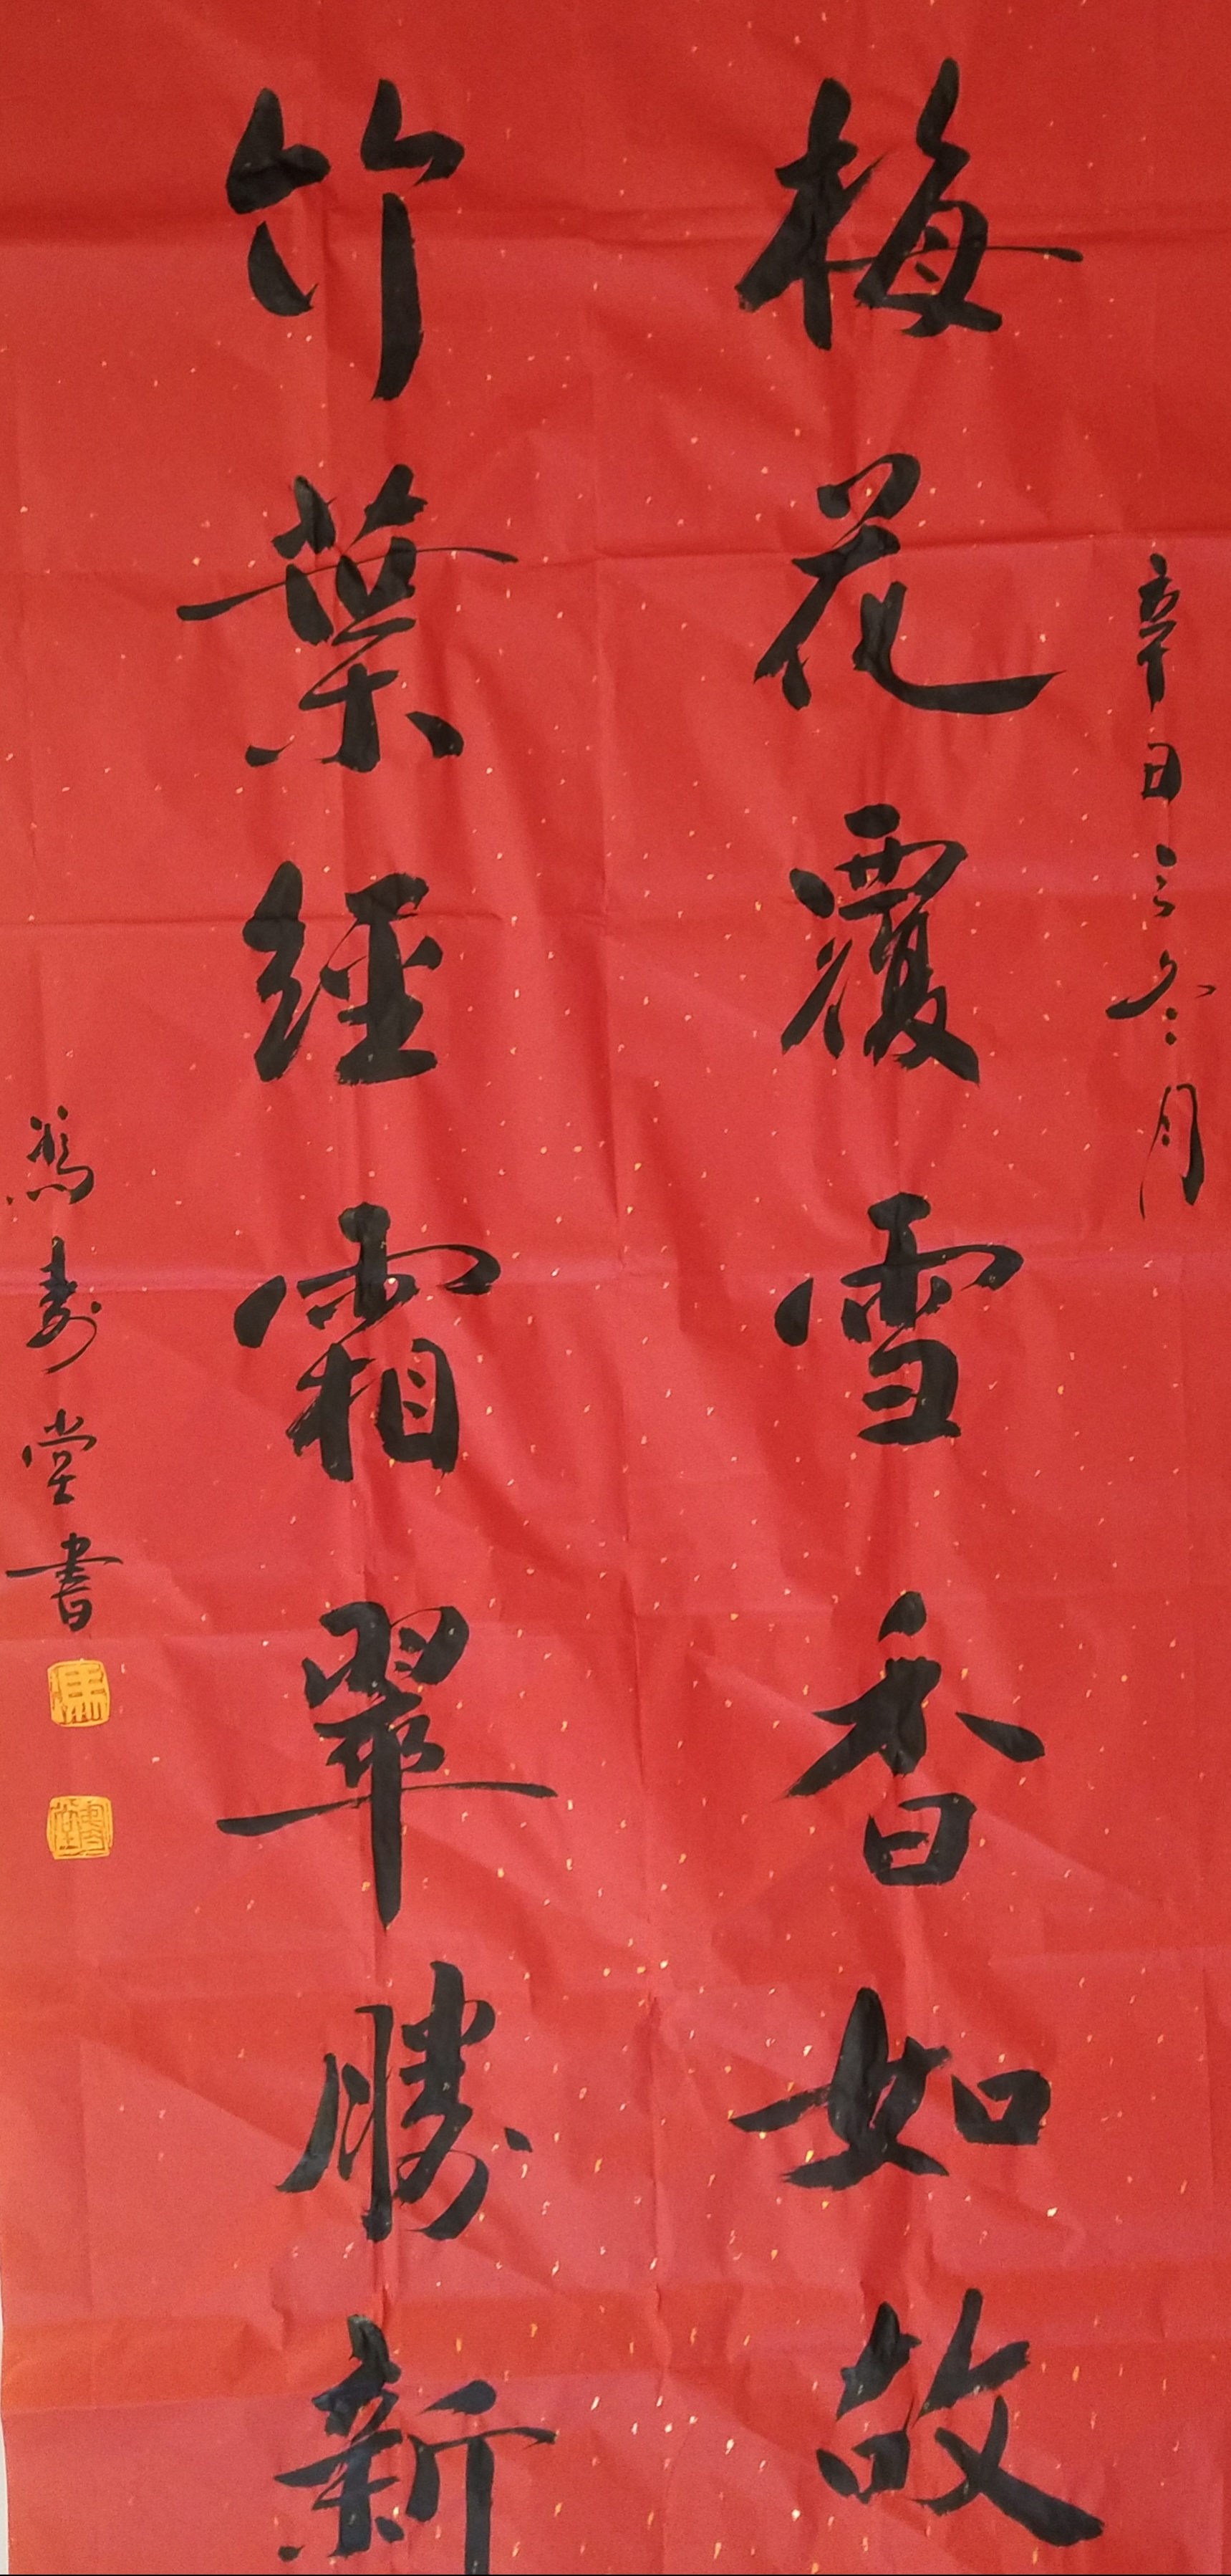 辛丑之冬月
梅花覆雪香如故
竹葉經霜翠勝新
馮寿堂書